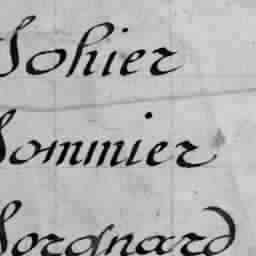 Sohier
Sommier
Sorgnard